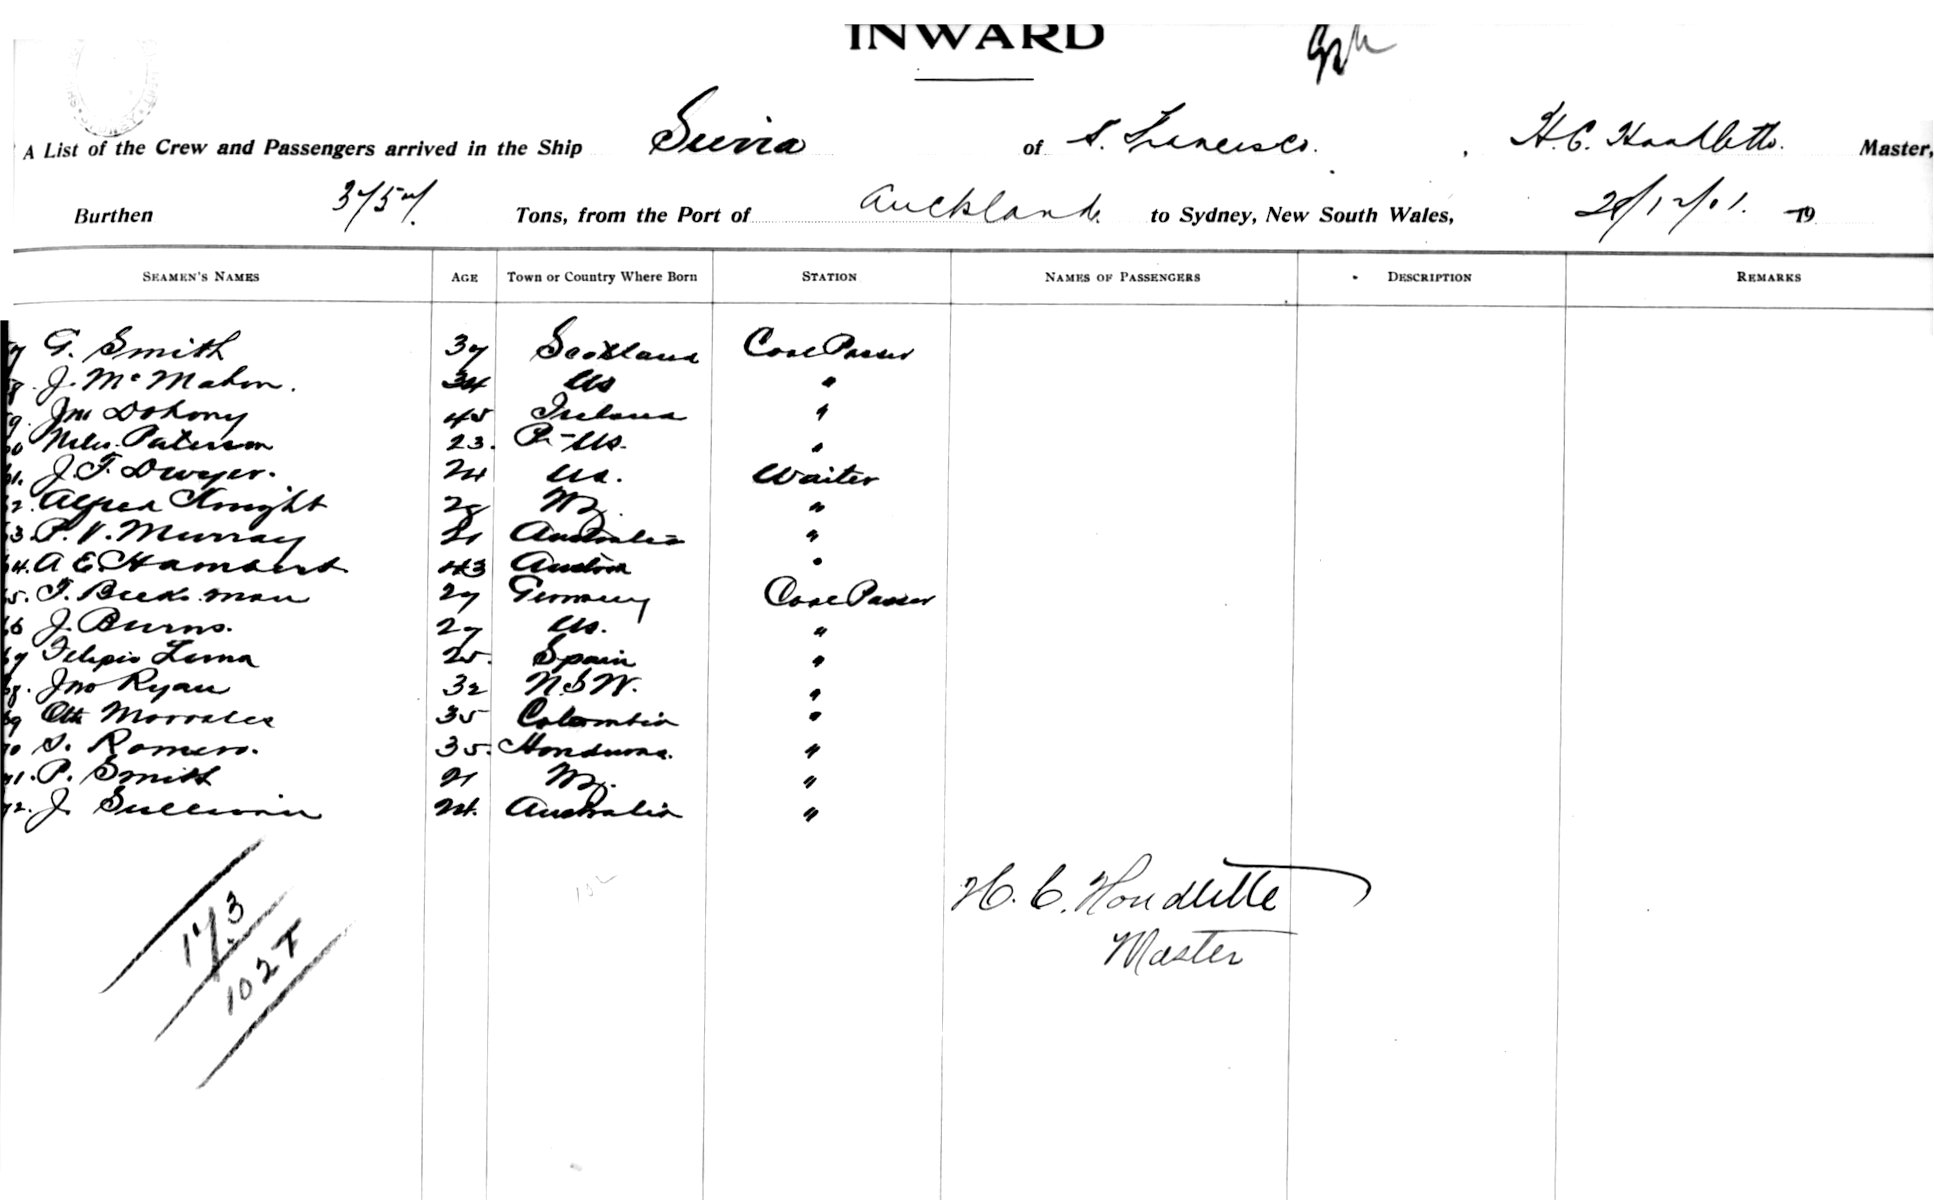 INWARD
A List of the Crew and Passengers arrived in the Ship Sierra of S. Francisco. , H. C. Houdlette. Master,
Burthen 3757. Tons, from the Port of Auckland. to Sydney, New South Wales, 28/12/01. 19
SEAMEN'S NAMES AGE Town or Country Where Born STATION NAMES OF PASSENGERS DESCRIPTION REMARKS
G. Smith 37 Scotland Coal Passer
J. McMahon. 34 US "
Jno Dohony 45 Ireland "
Paterson 23. US. "
61. J. F. Dwyer. 24 US. Waiter
62. Alfred Knight "
63. P. V. Murray 21 Australia "
64. A E Hambert 43 Austria "
65. F. Beekman 27 Germany Coal Passer
66 J. Burns. 27 US. "
67 Luna 25. Spain "
68. Jno Ryan 32 N.S.W. "
69 Otto Morrales 35 Colombia "
70 S. Romero. 35. Honduras. "
71. P. Smith 21 "
72. J. Sullivan 24. Australia "
H. C. Houdlette
Master
173
102 T